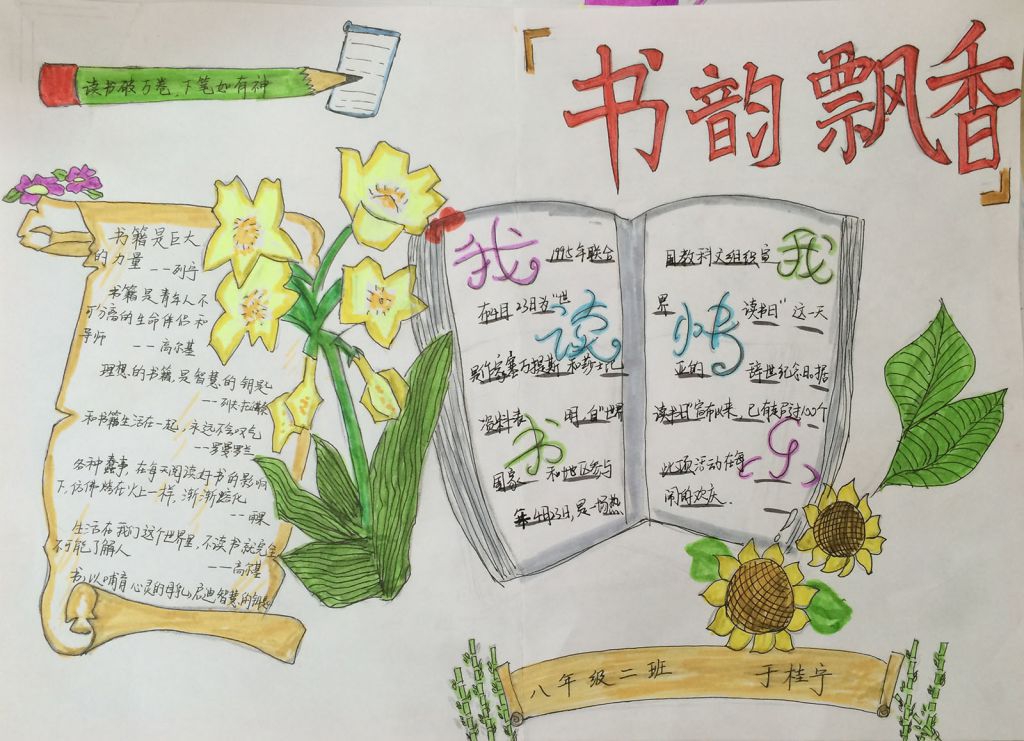 书韵飘香
读书破万卷，下笔如有神
书籍是巨大
的力量
——列宁
书籍是青年人不
可分离的生命伴侣和
导师
——高尔基
理想的书籍是智慧的钥匙
——列夫托尔斯泰
和书籍生活在一起，永远不会叹气
——罗曼罗兰
各种蠢事，在每天阅读好书的影响
下，仿佛烤在火上一样，渐渐熔化
生活在我们这个世界里，不读书就完全
不可能了解人
——高尔基
书，以哺育心灵的母乳，启迪智慧的钥匙
我谈书
我的乐
1995年联合
国教科文组织宣
布4月23日为"世
界
读书日"
这一天
是作家塞万提斯
和莎士比
亚的
辞世纪念日。据
资料表
明，自"世界
读书日"宣布以来，已有超过100个
国家
和地区参与
此项活动在每
年4月23日，是一场热
闹的欢庆.
八年级二班
于桂宁